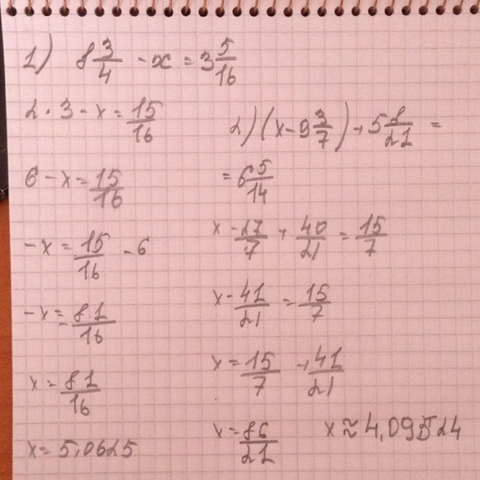 1) 8 3/4 - x = 3 5/16
2 · 3 - x = 15/16
6 - x = 15/16
-x = 15/16 - 6
-x = -81/16
x = 81/16
x = 5,0625
2) (x - 9 3/7) + 5 8/21 =
= 6 5/14
x - 27/7 + 40/21 = 15/7
x - 41/21 = 15/7
x = 15/7 + 41/21
x = 86/21 x ≈ 4,09524